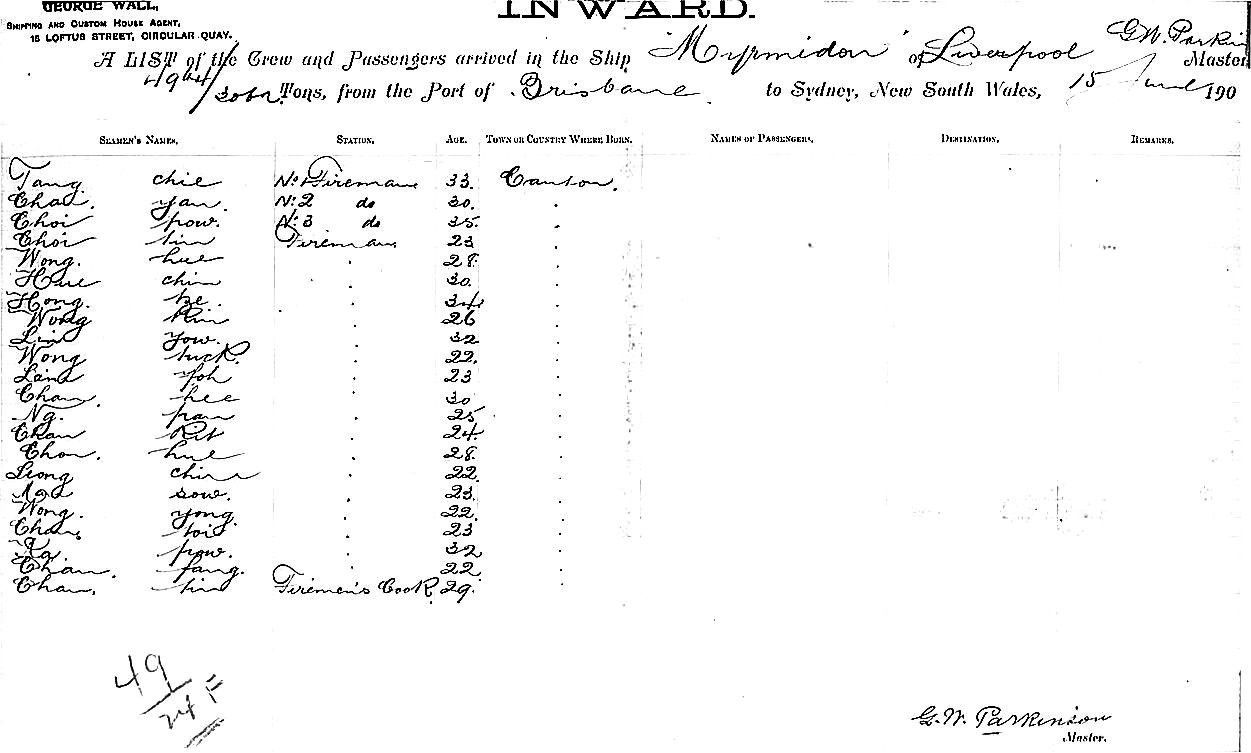 GEORGE WALL,
SHIPPING AND CUSTOM HOUSE AGENT,
15 LOFTUS STREET, CIRCULAR QUAY.
INWARD.
A LIST of the Crew and Passengers arrived in the Ship "Myrmidon" of Liverpool G.W. Parkin Master
4944/ Tons, from the Port of Brisbane to Sydney, New South Wales, 15 June 190
SEAMEN'S NAMES. STATION. AGE. TOWN OR COUNTRY WHERE BORN. NAMES OF PASSENGERS. DESTINATION. REMARKS.
Tang chie No 1 Fireman 33. Canton.
Chau. yan. No 2 do 30.
Choi pow. No 3 do 35.
Choi tin Fireman 23
Wong. hue 28.
Hue chin 30.
Hong. 34
Wong Kin 26
Lin yow. 32
Wong tuck. 22.
yoh 23
Chan. hee 30
Ng. pan 25
Chan Kit 24.
Chon. hue 28.
Leong chin 22.
sow. 23.
Wong. yong. 22.
Chan. toi 23
Ng. pow. 32
Chan. fang. 22.
Chan. tin Firemen's Cook 29.
49
24 F
G.W. Parkinson
Master.